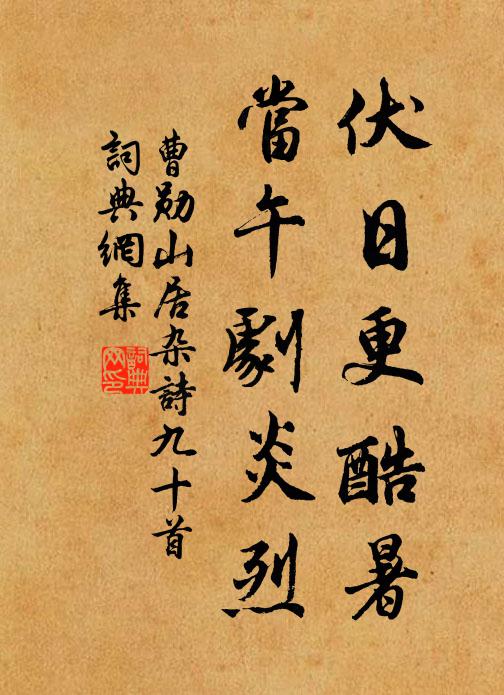 伏日更酷暑
當午劇炎烈
曹勛山居杂詩九十首
詞典網集
詞典网印